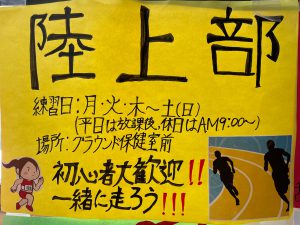 陸上部
練習日:月・火・木〜土(日)
(平日は放課後、休日はAM9:00〜)
場所:グラウンド保健室前
初心者大歓迎!!
一緒に走ろう!!!